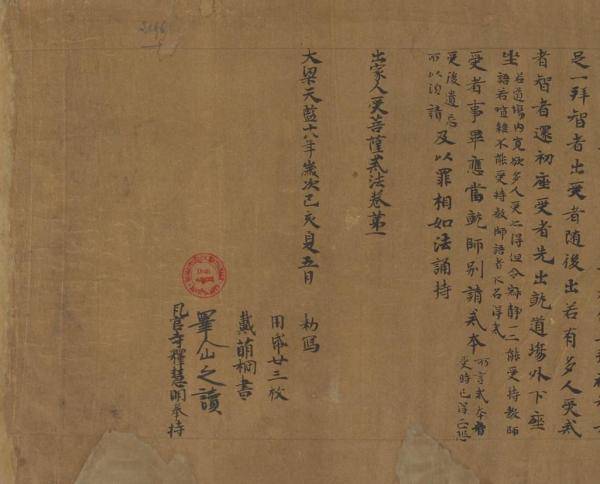 足一拜智者出受者随後出若有多人受戒
者智者還初座受者先出就道場外下座
坐若道場内寬欲多人受亦得但令寂静一一能受持教師
語若喧雜不能受持教師語者不名得戒
受者事畢應當就師别請戒本所言戒本者
受時已得
受後遺忘
所以須請及以罪相如法誦持
出家人受菩薩戒法卷第一
大梁天監十八年歲次己亥夏五月 勑寫
用紙廿三枚
戴萌桐書
之讀
瓦官寺釋慧明奉持